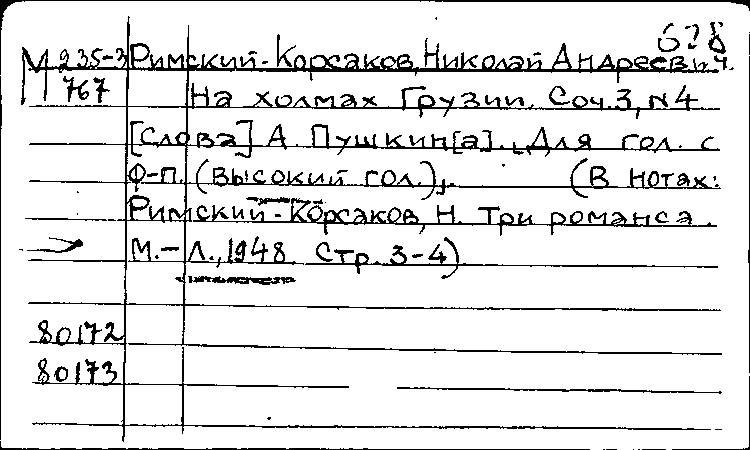 628
М 235-3 Римский-Корсаков, Николай Андреевич.
767 На холмах Грузии. Соч.3, N4
[Слова] А. Пушкин[а]. Для гол. с
ф-п. (высокий гол.), (В нотах:
Римский-Корсаков, Н. Три романса.
М.-Л., 1948. Стр. 3-4)
80172
80173